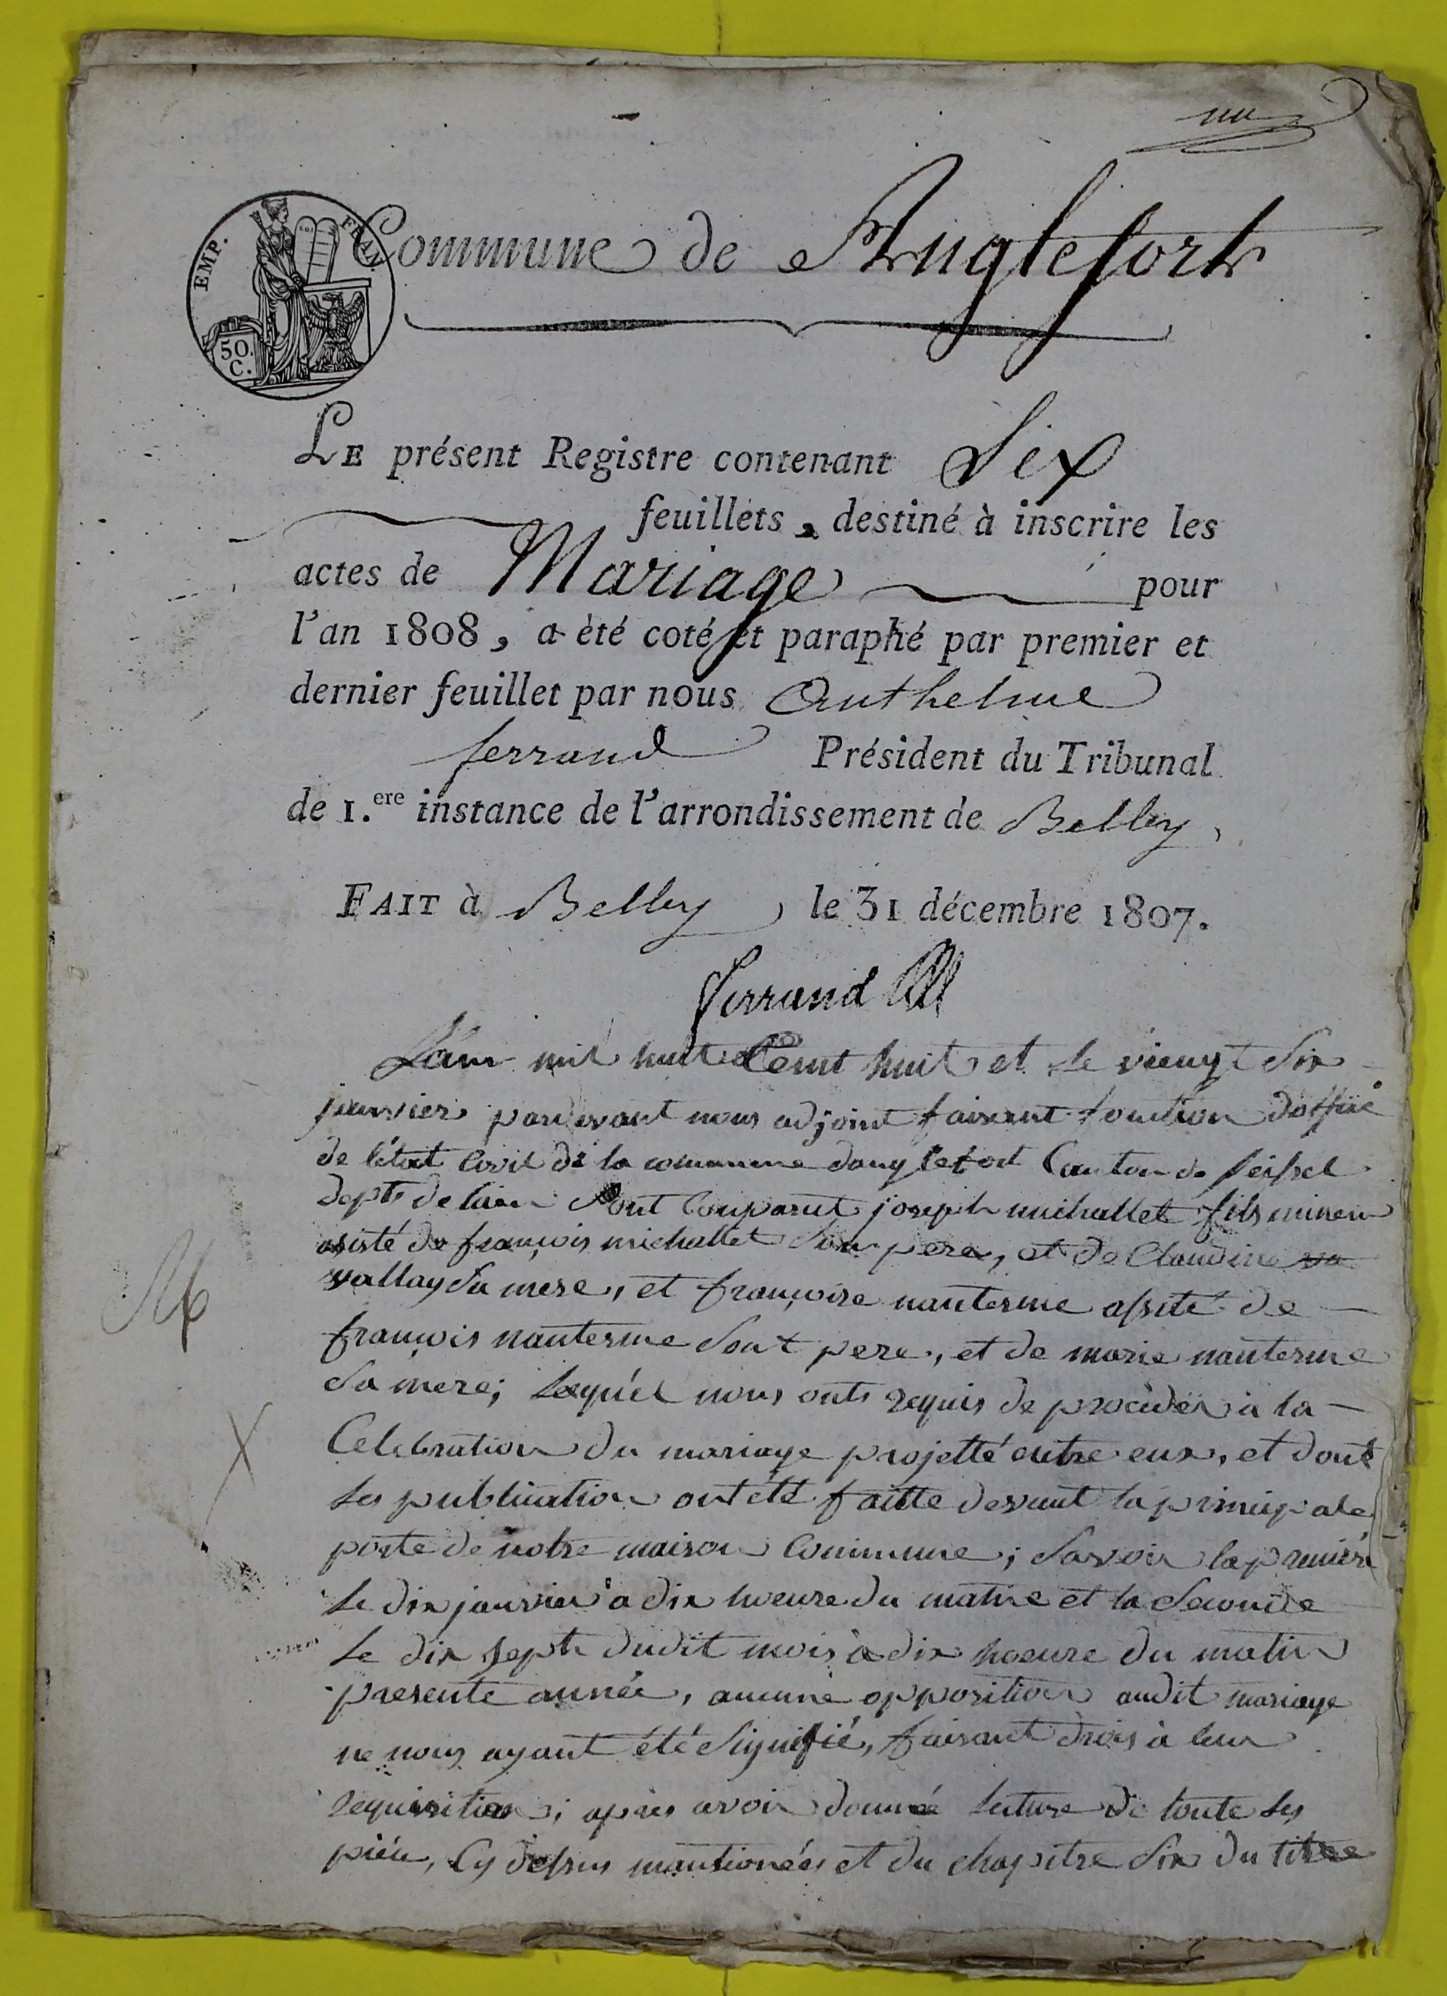 un
EMP. FRAN.
50.
C.
Commune de Anglefort
LE présent Registre contenant Six
feuillets, destiné à inscrire les
actes de Mariage pour
l'an 1808, a été coté et paraphé par premier et
dernier feuillet par nous Anthelme
ferrand Président du Tribunal
de 1.ere instance de l'arrondissement de Belley,
FAIT à Belley, le 31 décembre 1807.
Ferrand
L'an mil huit Cent huit et le vingt six
janvier pardevant nous adjoint faisant fonction doffice
de létat Civil de la commune danglefort Canton de seissel
dept de lain sont Comparut joseph michallet fils mineur
asisté de françois michallet son pere, et de Claudine
vallay sa mere, et françoise nanterme assité de
françois nanterme sont pere, et de marie nanterme
sa mere; lequel nous onts requis de procéder à la
Celebration du mariage projetté entre eux, et dont
les publication ont été faitte devant la principale
porte de notre maison Commune; savoir la premiere
le dix janvier à dix heure du matin et la seconde
le dix sept dudit mois à dix heure du matin
presente année, aucune opposition audit mariage
ne nous ayant été signifié, faisant drois à leur
requisition; apres avoir donné lecture de toute les
piéce, Cy dessus mantionées et du chapitre six du titre